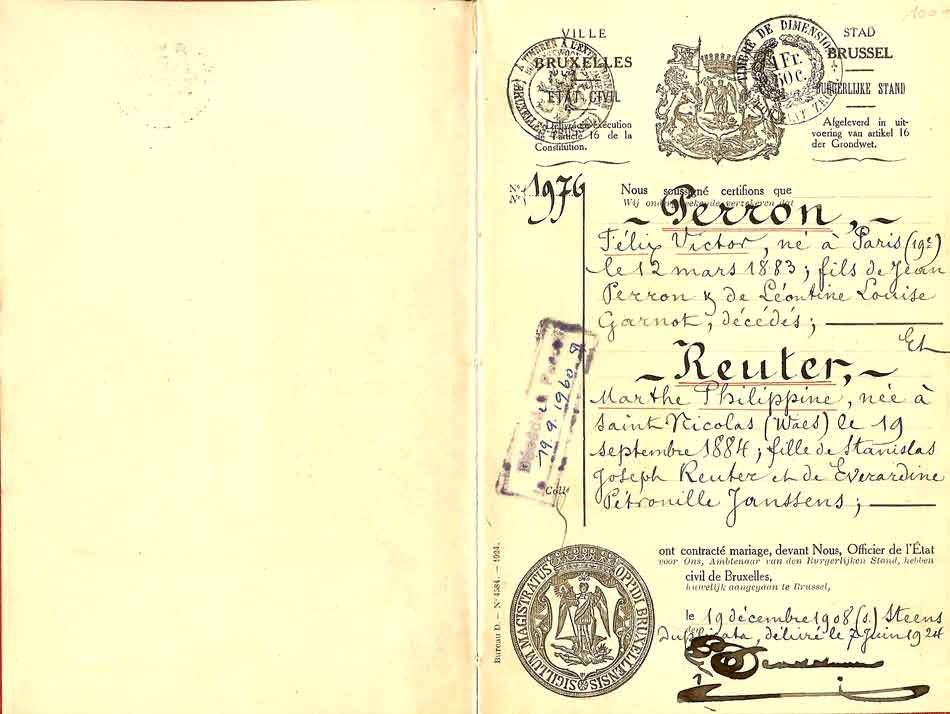 100
VILLE
BRUXELLES
ÉTAT CIVIL
Délivré en exécution
de l'article 16 de la
Constitution.
TIMBRE DE DIMENSION
1 Fr.
50 C.
STAD
BRUSSEL
BURGERLIJKE STAND
Afgeleverd in uit-
voering van artikel 16
der Grondwet.
N° 1976
Nr
Nous soussigné certifions que
Wij ondergeteekende verzekeren dat
Perron,
Félix Victor, né à Paris (19e)
le 12 mars 1883; fils de Jean
Perron & de Léontine Louise
Garnot, décédés;
Et
Reuter,
Marthe Philippine, née à
Saint Nicolas (Waes) le 19
septembre 1884; fille de Stanislas
Joseph Reuter et de Everardine
Pétronille Janssens;
19.9.1960
Coll.
ont contracté mariage, devant Nous, Officier de l'État
voor Ons, Ambtenaar van den Burgerlijken Stand, hebben
civil de Bruxelles,
huwelijk aangegaan te Brussel,
le 19 décembre 1908 (s.) Steens
Duplicata, délivré le 7 juin 1924
SIGILLUM MAGISTRATUS OPPIDI BRUXELLENSIS
Bureau D. — N° 4584. — 1924.